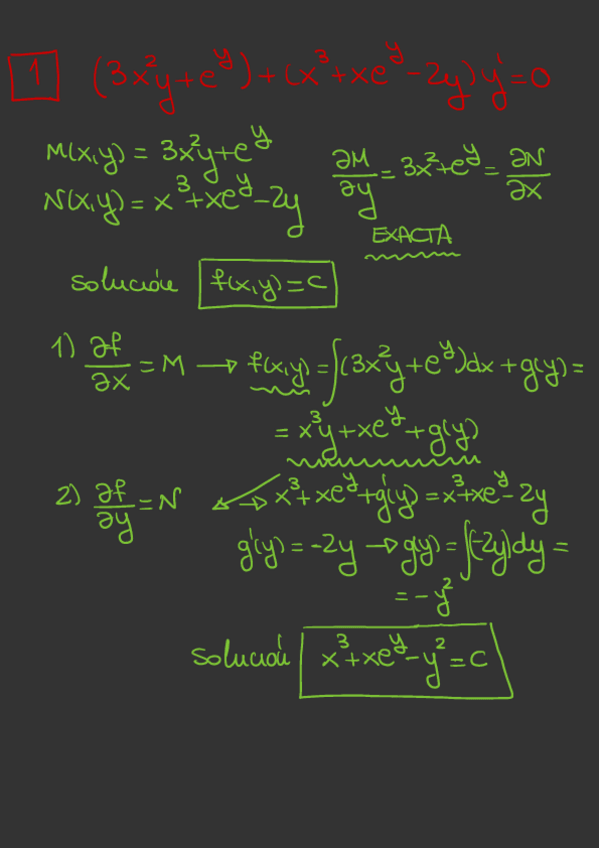 1 (3x²y+e^y)+(x³+xe^y-2y)y'=0
M(x,y) = 3x²y+e^y
∂M/∂y = 3x²+e^y = ∂N/∂x
N(x,y) = x³+xe^y-2y
EXACTA
solución f(x,y)=C
1) ∂f/∂x = M → f(x,y) = ∫(3x²y+e^y)dx + g(y) =
= x³y+xe^y+g(y)
2) ∂f/∂y = N → x³+xe^y+g'(y) = x³+xe^y-2y
g'(y) = -2y → g(y) = ∫(-2y)dy =
= -y²
solución x³+xe^y-y²=C